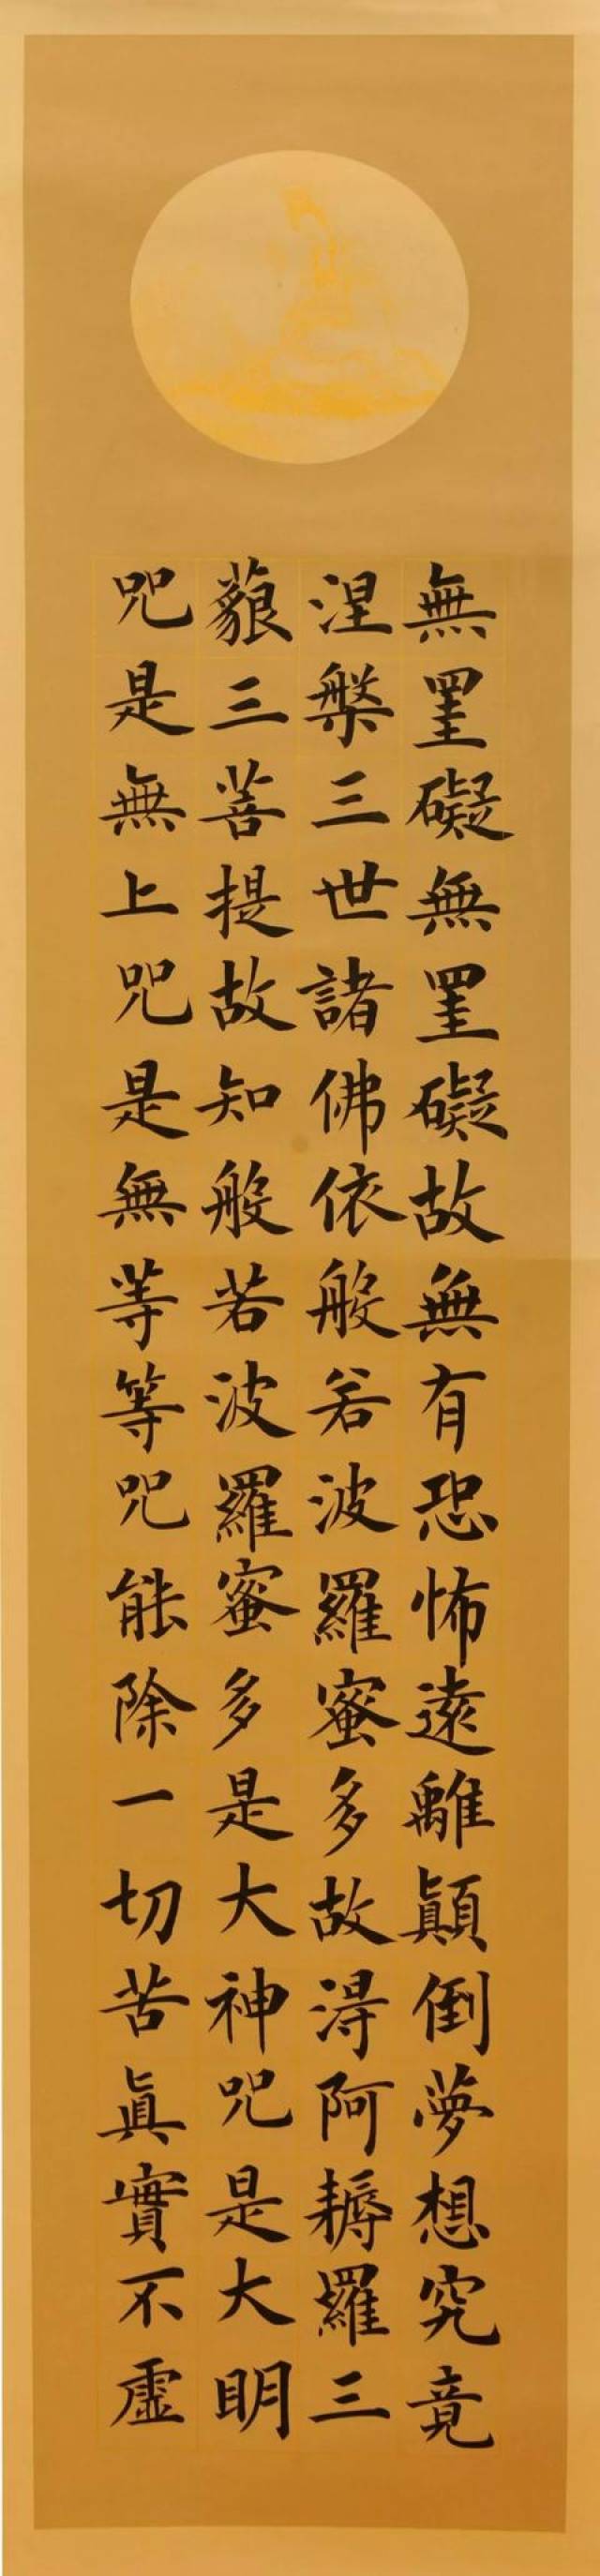 無罣礙無罣礙故無有恐怖遠離顛倒夢想究竟
涅槃三世諸佛依般若波羅蜜多故得阿耨羅三
藐三菩提故知般若波羅蜜多是大神咒是大明
咒是無上咒是無等等咒能除一切苦真實不虛